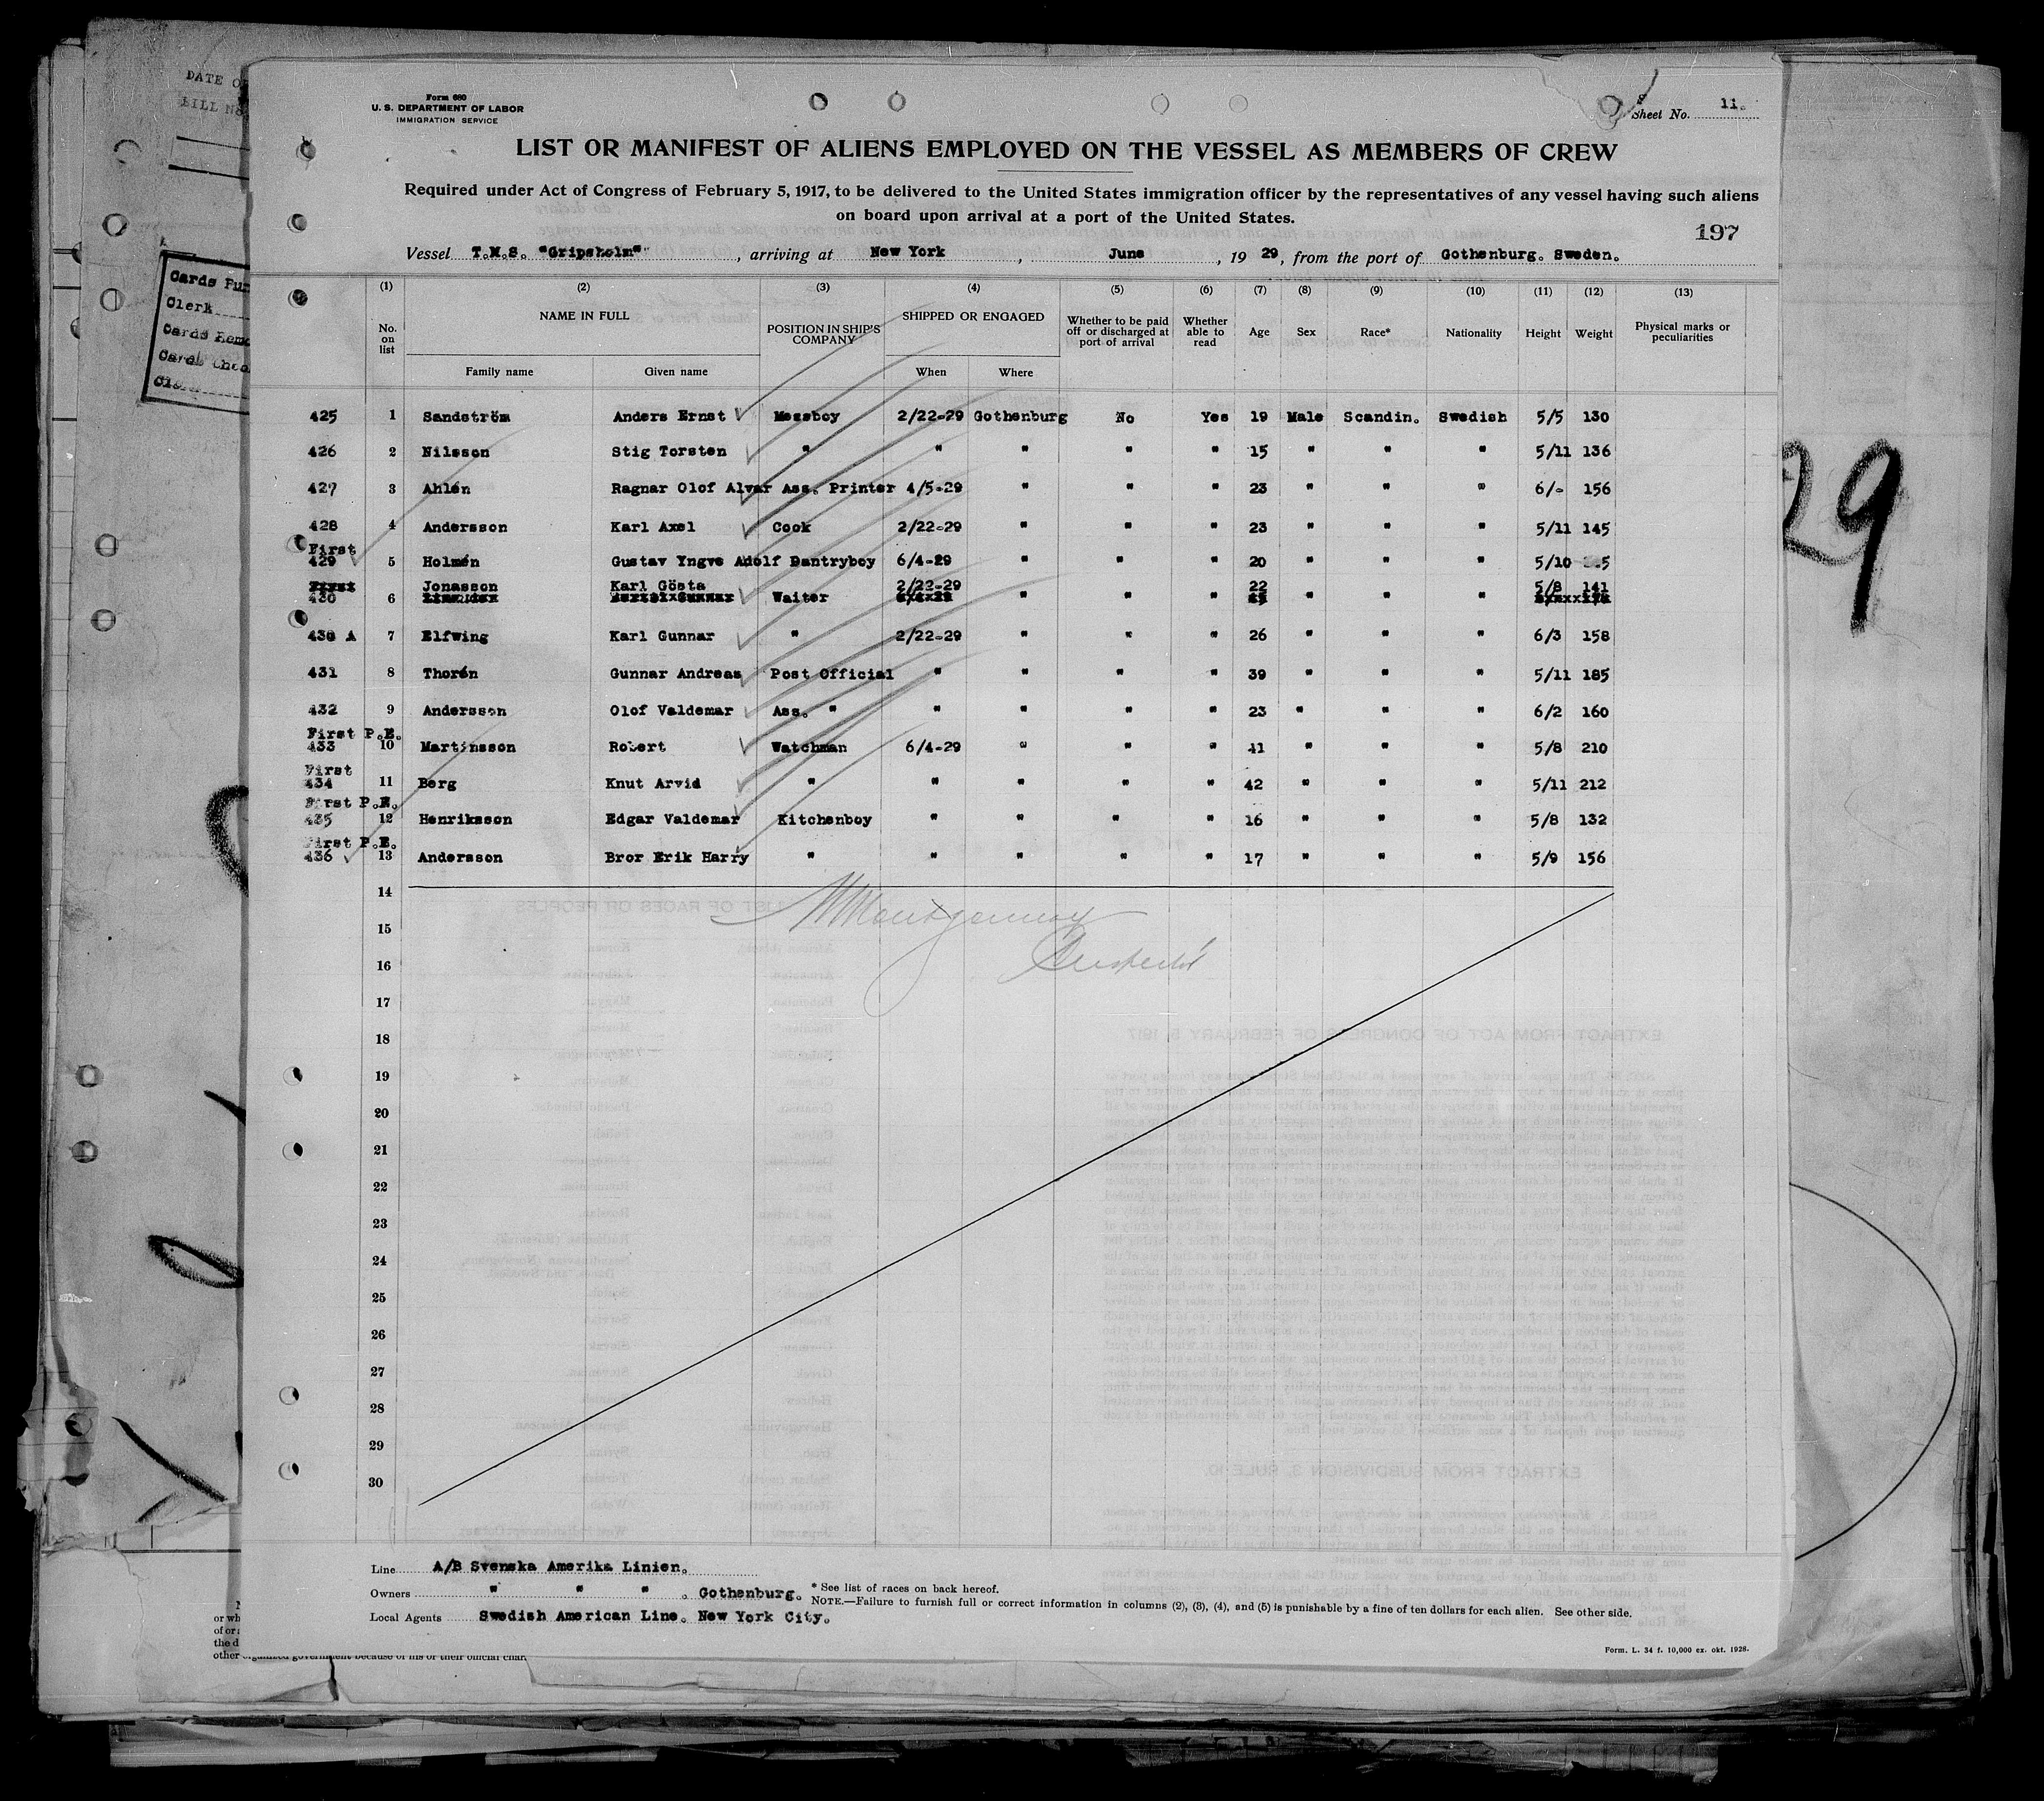 DATE OF
Form 680
U. S. DEPARTMENT OF LABOR
IMMIGRATION SERVICE
Sheet No. 11.
LIST OR MANIFEST OF ALIENS EMPLOYED ON THE VESSEL AS MEMBERS OF CREW
Required under Act of Congress of February 5, 1917, to be delivered to the United States immigration officer by the representatives of any vessel having such aliens
on board upon arrival at a port of the United States.
197
Vessel T.M.S. "Gripsholm" , arriving at New York , June , 19 29, from the port of Gothenburg. Sweden.
Cards Fur
Clerk
Cards
(1) (2) (3) (4) (5) (6) (7) (8) (9) (10) (11) (12) (13)
No. on list NAME IN FULL Family name Given name POSITION IN SHIP'S COMPANY SHIPPED OR ENGAGED When Where Whether to be paid off or discharged at port of arrival Whether able to read Age Sex Race* Nationality Height Weight Physical marks or peculiarities
425 1 Sandström Anders Ernst Messboy 2/22-29 Gothenburg No Yes 19 Male Scandin. Swedish 5/5 130
426 2 Nilsson Stig Torsten " " " " " 15 " " " 5/11 136
427 3 Ahlén Ragnar Olof Alvar Ass. Printer 4/5-29 " " " 23 " " " 6/- 156
428 4 Andersson Karl Axel Cook 2/22-29 " " " 23 " " " 5/11 145
First
429 5 Holmén Gustav Yngve Adolf Pantryboy 6/4-29 " " " 20 " " " 5/10
Jonasson Karl Gösta 2/22-29 22 5/8 141
430 6 Waiter " " " " " "
430 A 7 Elfwing Karl Gunnar " 2/22-29 " " " 26 " " " 6/3 158
431 8 Thorén Gunnar Andreas Post Official " " " " 39 " " " 5/11 185
432 9 Andersson Olof Valdemar Ass. " " " " " 23 " " " 6/2 160
First P.E.
433 10 Martinsson Robert Watchman 6/4-29 " " " 41 " " " 5/8 210
First
434 11 Berg Knut Arvid " " " " " 42 " " " 5/11 212
First P.E.
435 12 Henriksson Edgar Valdemar Kitchenboy " " " " 16 " " " 5/8 132
First P.E.
436 13 Andersson Bror Erik Harry " " " " " 17 " " " 5/9 156
14
Montgomery
15
Inspector
16
17
18
19
20
21
22
23
24
25
26
27
28
29
30
29
Line A/B Svenska Amerika Linien.
Owners " " " . Gothenburg.
Local Agents Swedish American Line. New York City.
* See list of races on back hereof.
NOTE.—Failure to furnish full or correct information in columns (2), (3), (4), and (5) is punishable by a fine of ten dollars for each alien. See other side.
Form. L. 34 f. 10,000 ex. okt. 1928.
or wh
the d
other organized government because of his or their official char